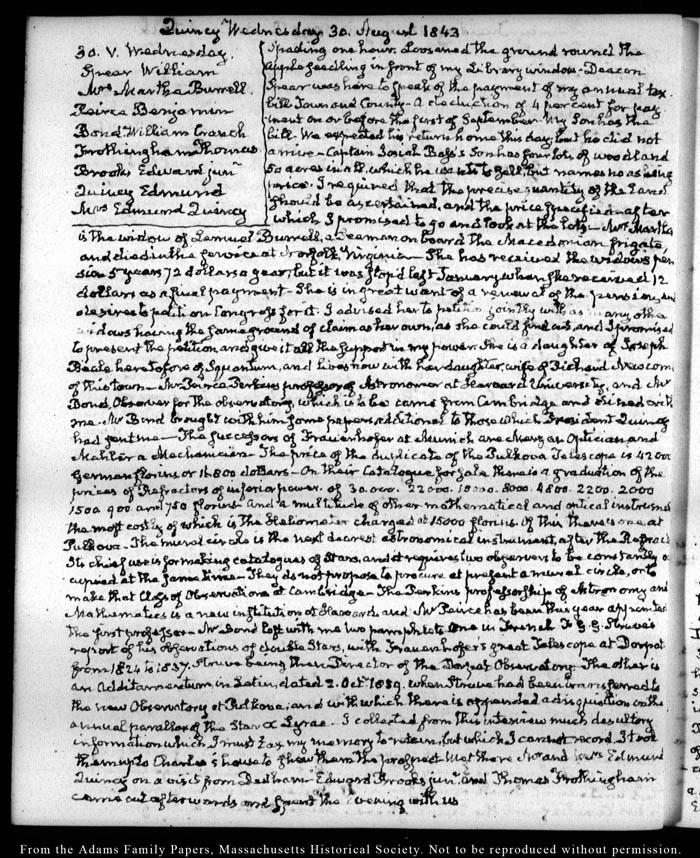 Quincy Wednesday 30. August 1843
30. V. Wednesday.
Spear William
Mrs Martha Burrell.
Peirce Benjamin
Bond William Cranch
Frothingham Thomas
Brooks Edward junr
Quincy Edmund
Mrs Edmund Quincy
Spading one hour. Loosened the ground round the
apple seedling in front of my Library window. Deacon
Spear was here to speak of the payment of my annual tax
bill Town and County. A deduction of 4 per cent for pay
ment on or before the first of September. My Son has the
bill. We expected his return home this day, but he did not
arrive. Captain Josiah Bass's Son has four lots of woodland
50 acres in all, which he wants to sell, but names no asking
price. I required that the precise quantity of the land
should be ascertained, and the price specified after
which I promised to go and look at the lots. Mrs Martha
is the widow of Lemuel Burrell, a Seaman on board the Macedonian frigate,
and died in the service at Norfolk, Virginia. She has received the widow's pen
sion 5 years 72 dollars a year, but it was stop'd last January when she received 12
dollars as a final payment. She is in great want of a renewal of the pension, and
desires to petition Congress for it. I advised her to petition jointly with as many other
widows having the same ground of claim as her own, as she could find out, and I promised
to present the petition and give it all the support in my power. She is a daughter of Joseph
Beale heretofore of Squantum, and lives now with her daughter, wife of Richard Newcomb
of this town. Mr Peirce, Perkins professor of Astronomer at Harvard University, and Mr
Bond, Observer for the observatory which is to be came from Cambridge and dined with
me. Mr Bond brought with him some papers, additional to those which President Quincy
had sent me. The successors of Frauenhofer at Munich are Merz an Optician, and
Mahler a Mechanician. The price of the duplicate of the Pulkova Telescope is 42000
German florins or 16800 dollars. On their Catalogue for sale there is a graduation of the
prices of Refractors of inferior power. of 30.000. 22000. 8000. 4800. 2200. 2000
1500 900 and 750 florins and a multitude of other mathematical and optical instruments
the most costly of which is the Heliometer charged at 15000 florins. Of this there is one at
Pulkova. The mural circle is the next dearest astronomical instrument, after the Refractor
Its chief use is for making catalogues of Stars, and it requires two observers to be constantly oc
cupied at the same time. They do not propose to procure at present a mural circle, or to
make that Class of Observations at Cambridge. The Perkins professorship of Astronomy and
Mathematics is a new institution at Harvard, and Mr Peirce has been this year appointed
the first professor. Mr Bond left with me two pamphlets one in French Struve's
report of his observations of double Stars, with Frauenhofer's great Telescope at Dorpat
from 1824 to 1837. Struve being then Director of the Dorpat Observatory. The other is
an Additamentum, in Latin, dated 2. Octr 1839. when Struve had been transferred to
the new Observatory at Pulkova, and with which there is appended a disquisition on the
annual parallax of the Star α Lyrae. I collected from this interview much desultory
information which I must tax my memory to retain, but which I cannot record. I took
them up to Charles's house to shew them the prospect. Met there Mr and Mrs Edmund
Quincy on a visit from Dedham. Edward Brooks junr and Thomas Frothingham
came out afterwards and spent the evening with us
From the Adams Family Papers, Massachusetts Historical Society. Not to be reproduced without permission.